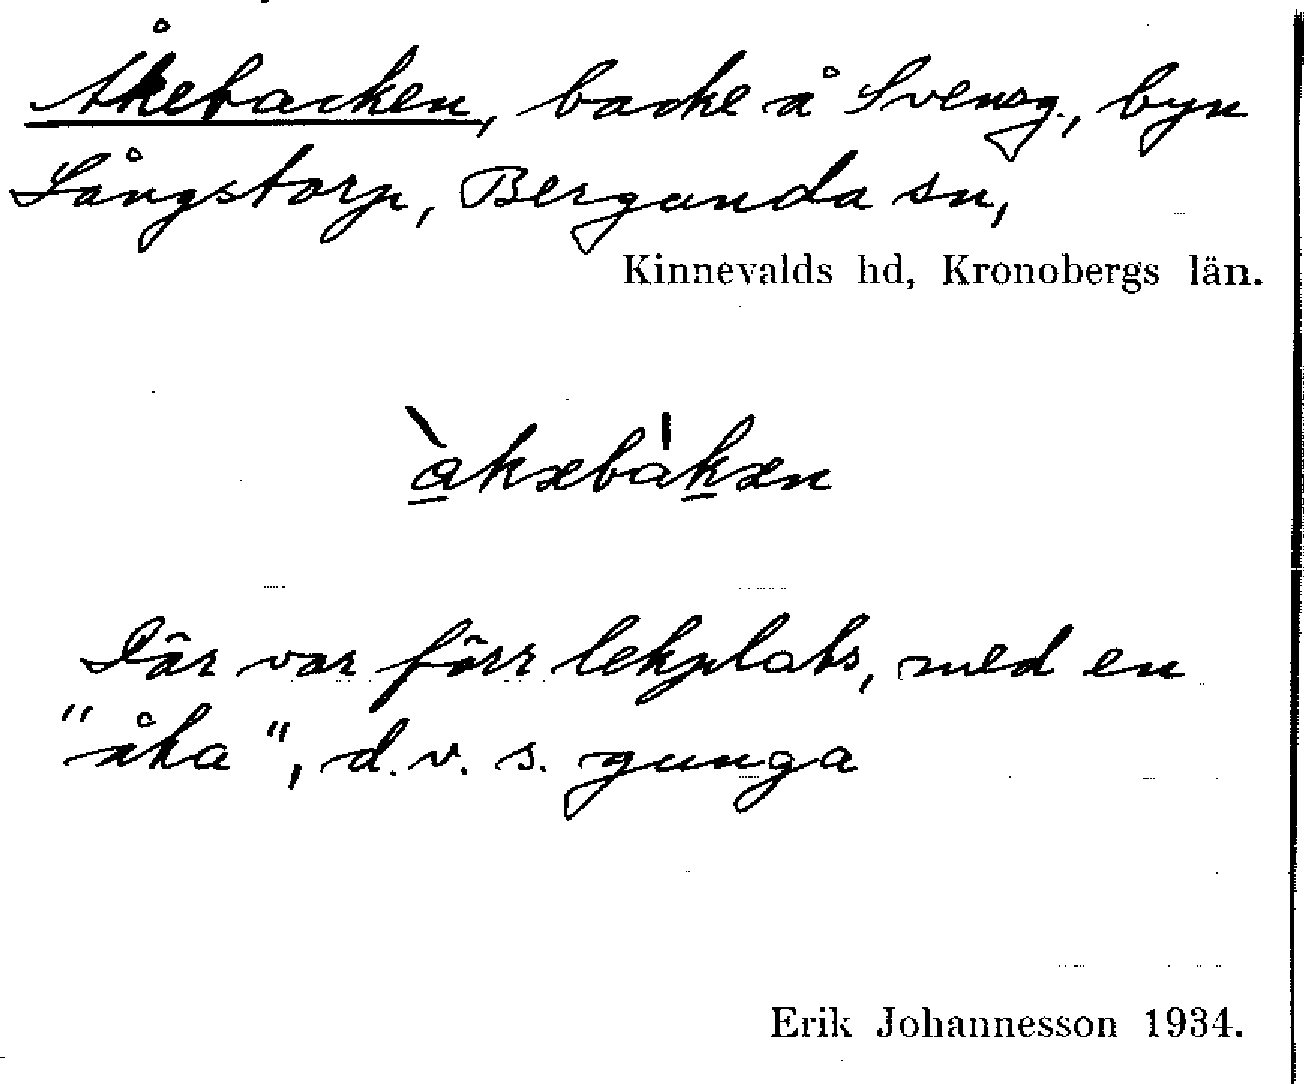 Åkebacken, backe å Svensg., byn
Långstorp, Bergunda sn,
Kinnevalds hd, Kronobergs län.
àkæbákæn
Där var förr lekplats, med en
"åka", d.v.s. gunga
Erik Johannesson 1934.